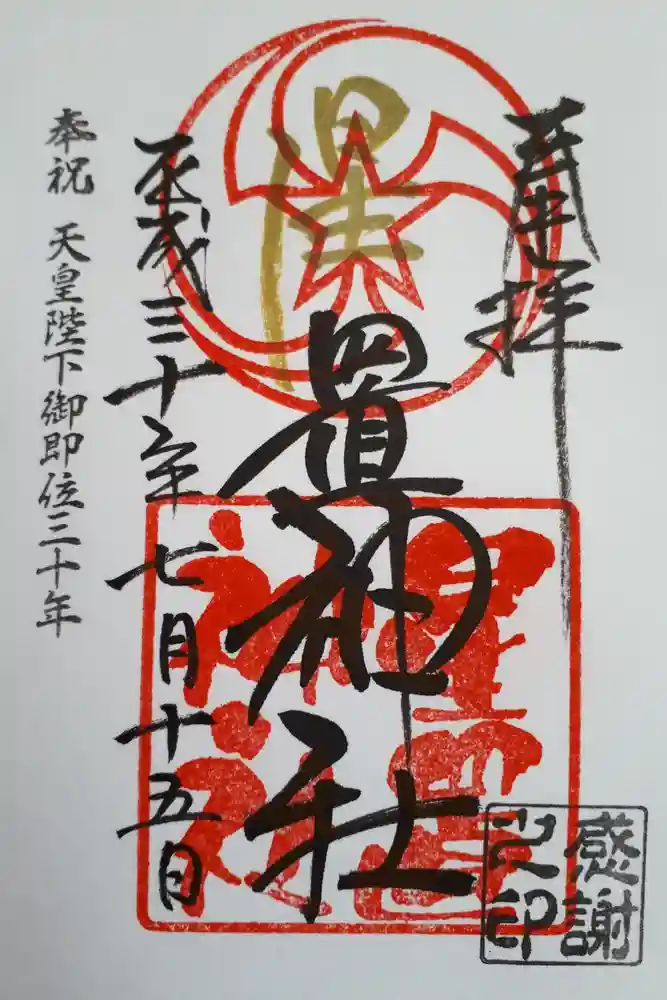 奉拝
星
置神社
平成三十年七月十五日
奉祝 天皇陛下御即位三十年
星置
神社
感謝
之印